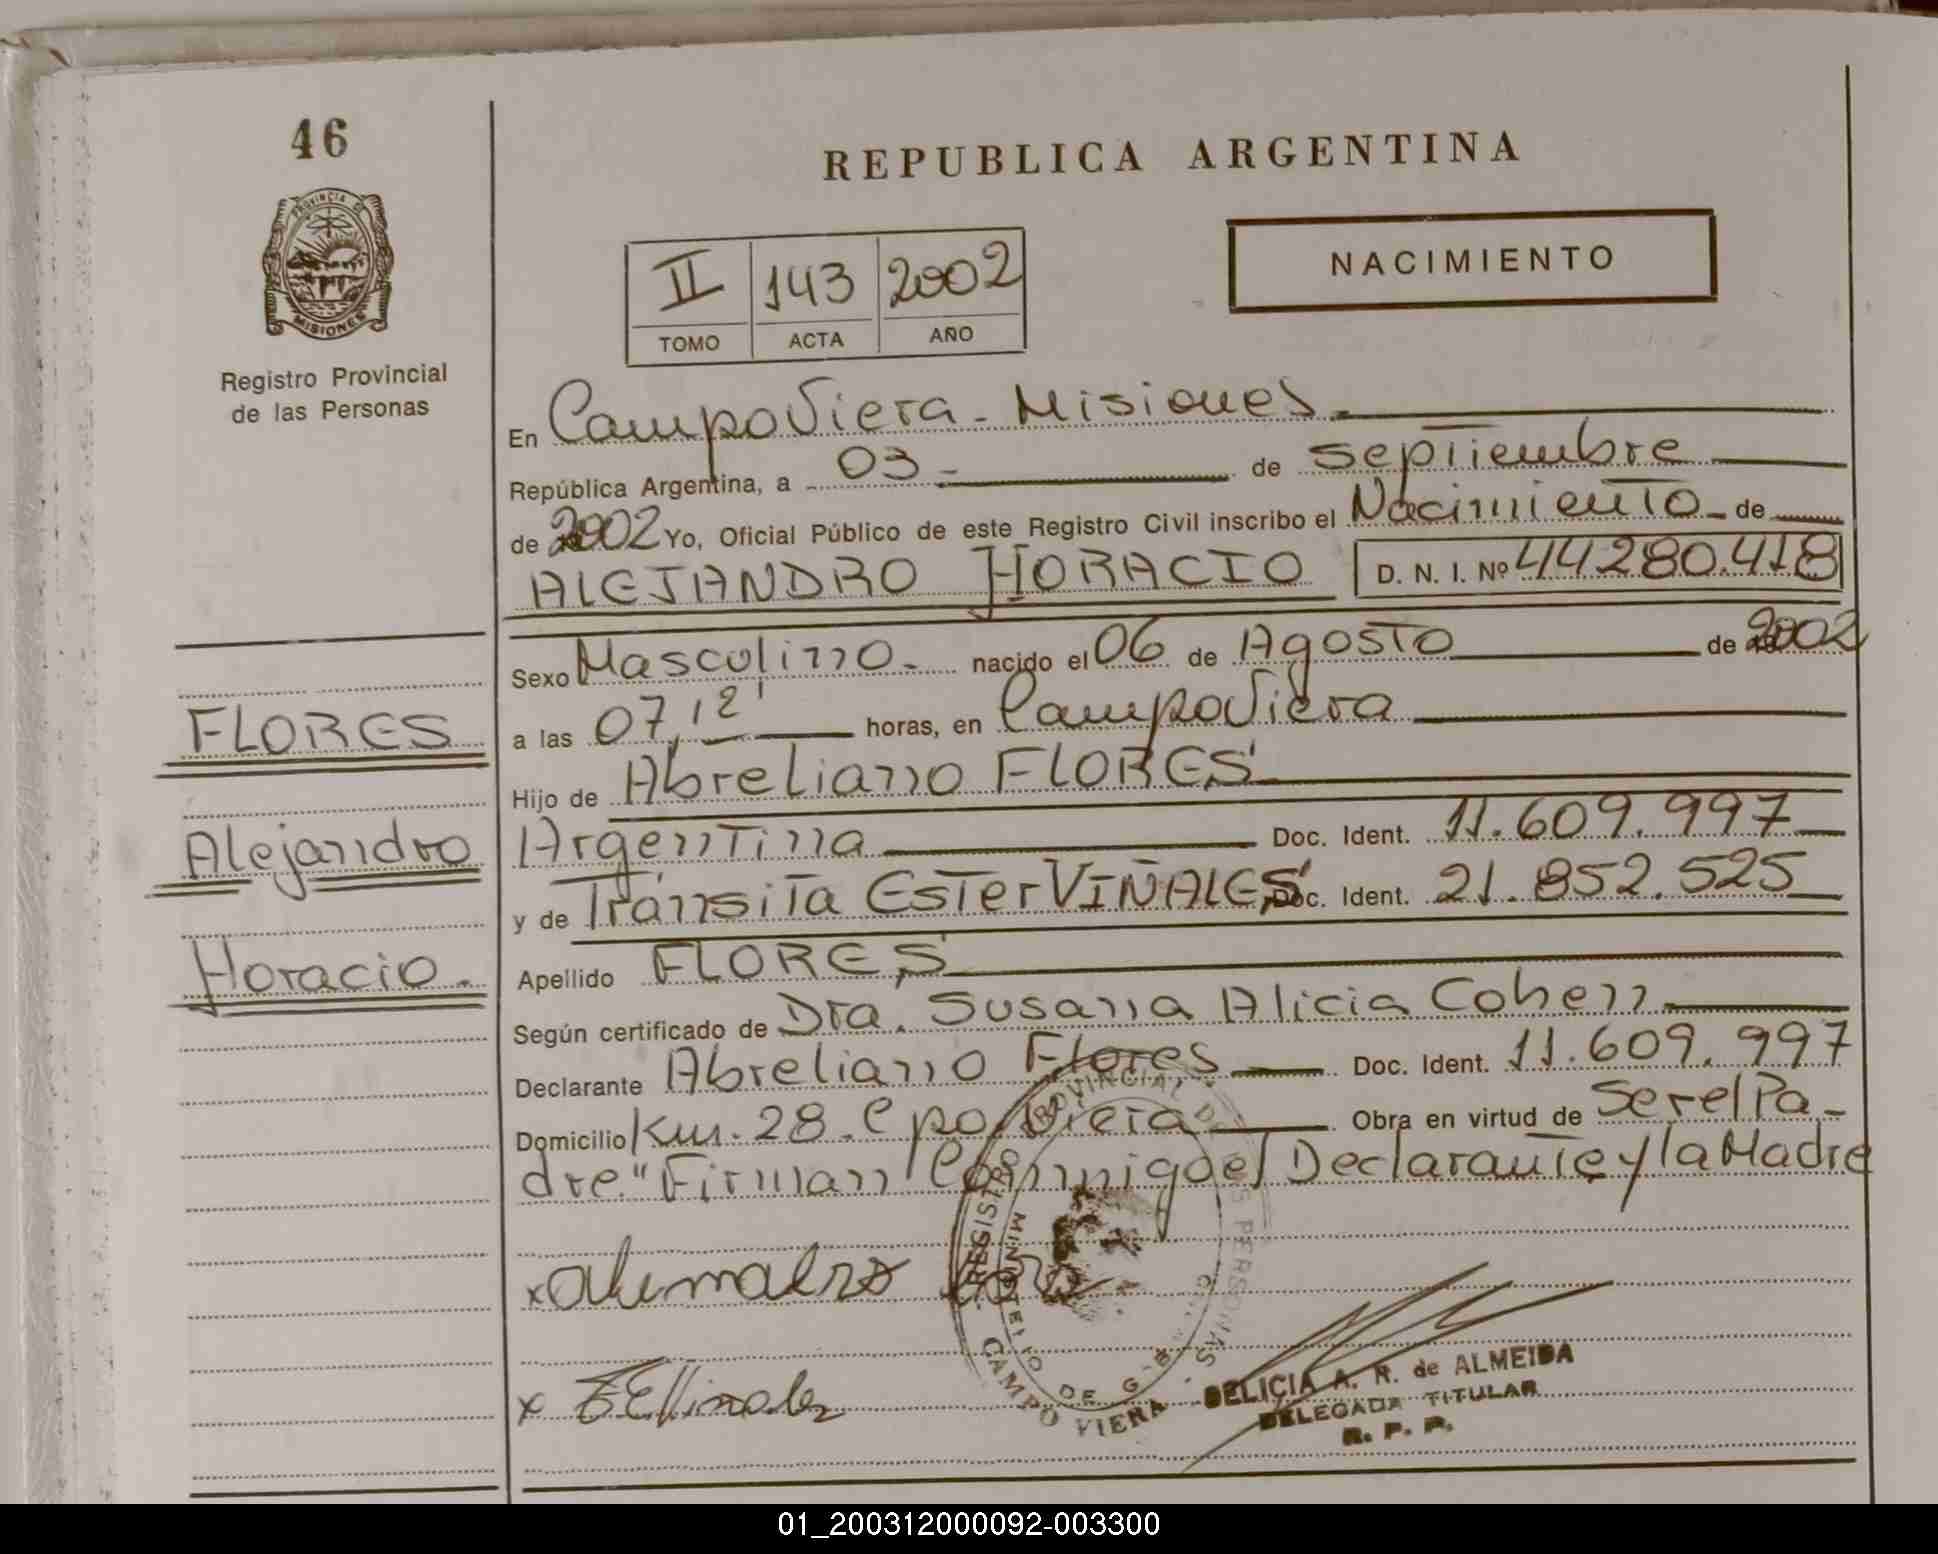 46
REPUBLICA ARGENTINA
PROVINCIA DE
MISIONES
Registro Provincial
de las Personas
II 143 2002
TOMO ACTA AÑO
NACIMIENTO
En CampoViera - Misiones
República Argentina, a 03 - de septiembre
de 2002 Yo, Oficial Público de este Registro Civil inscribo el Nacimiento - de
ALEJANDRO HORACIO D. N. I. Nº 44.280.418
Sexo Masculino - nacido el 06 de Agosto de 2002
FLORES
a las 07,12' horas, en CampoViera
Hijo de Abreliano FLORES
Alejandro
Argentina Doc. Ident. 11.609.997
y de Tránsita Ester VIÑALES Doc. Ident. 21.852.525
Horacio.
Apellido FLORES
Según certificado de Dra. Susana Alicia Cohen
Declarante Abreliano Flores Doc. Ident. 11.609.997
Domicilio Km. 28. Cpo. Viera Obra en virtud de Ser el Pa-
dre." Firman Conmigo el Declarante y la Madre
REGISTRO PROVINCIAL DE LAS PERSONAS
MINISTERIO DE G
CAMPO VIERA
x
x
DELICIA A. R. de ALMEIDA
DELEGADA TITULAR
R. P. P.
01_200312000092-003300